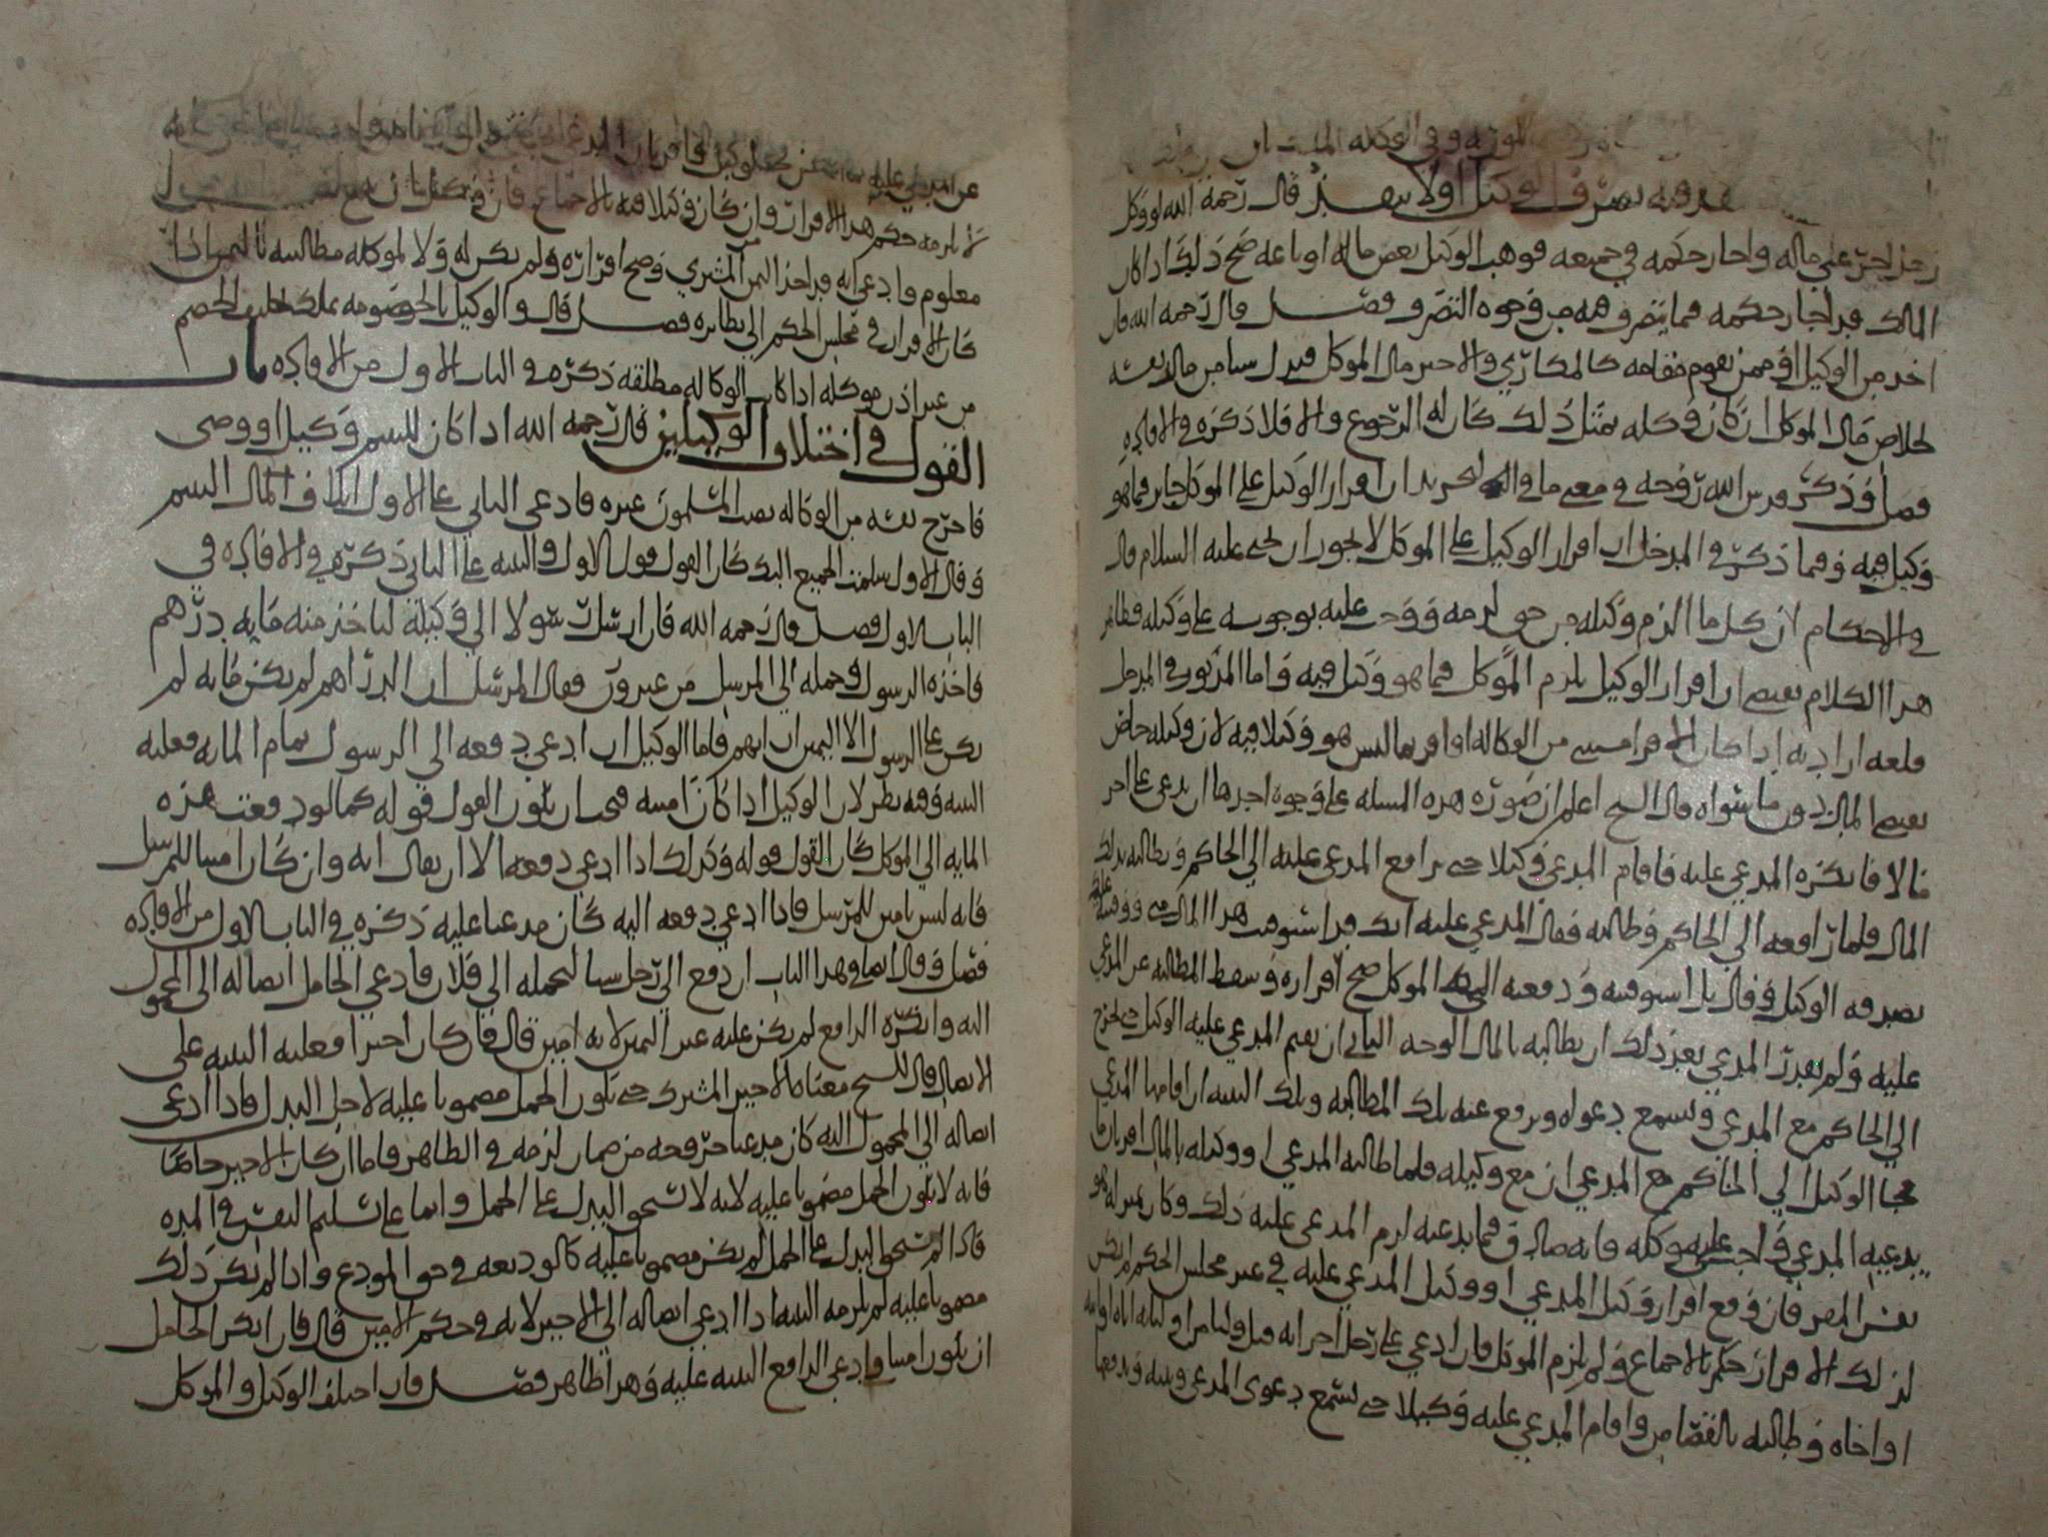 الموته وفي الوكله
فيه تصرف الوكيل اولا ينفذ قال رحمه الله لو وكل
رجل اخر على ماله واجاز حكمه في جميعه فوهب الوكيل بعض ماله او باعه صح ذلك اذا كان
المالك قد اجاز حكمه فيما يتصرف فيه من وجوه التصرف فصل قال رحمه الله فان
اخذ من الوكيل او ممن يقوم مقامه كالمكاري والاجير مال الموكل فبذل شيا من مال نفسه
لخلاص مال الموكل ان كان وكله بمثل ذلك كان له الرجوع والا فلا ذكره في الافاده
فصل وذكر قدس الله روحه في معنى ما في التحرير ان اقرار الوكيل على الموكل جايز فيما هو
وكيل فيه وفيما ذكر في المدخل ان اقرار الوكيل على الموكل لا يجوز ان يحيى عليه السلام قال
في الاحكام لان كل ما الزم وكيله من حق لزمه ووجب عليه بوجوبه على وكيله فظاهر
هذا الكلام يقتضي ان اقرار الوكيل يلزم الموكل فيما هو وكيل فيه واما المذكور في المدخل
فلعه اراد به اذا كان الاقرار من الوكاله او اقر بما ليس هو وكيلا فيه لان وكيله خاص
بقبض المال دون ما سواه قال الشيخ اعلم ان صوره هذه المسله على وجوه احدها ان يدعي على اخر
مالا فانكره المدعي عليه فاقام المدعي وكيلا حتى يرافع المدعي عليه الي الحاكم ويطالبه بذلك
المال فلما رافعه الي الحاكم وطالبه فقال المدعي عليه انك قد استوفيت هذا المال مني
الوكيل وقال بل استوفيته ودفعته الي الموكل صح اقراره وسقط المطالبه عن المدعي
عليه ولم يقدر المدعي بعد ذلك ان يطالبه بالمال الوجه الثاني ان يقيم المدعي عليه الوكيل حتى يخرج
الي الحاكم مع المدعي ويسمع دعواه ويدفع عنه بذلك المطالبه وتلك البينه ان اقامها المدعي
فجا الوكيل الي الحاكم مع المدعي او مع وكيله فلما طالبه المدعي او وكيله بالمال اقر بان ما
يدعيه المدعي واجب على موكله فانه صادق فيما يدعيه لزم المدعي عليه ذلك وكان بمنزله
نفس المقر فان وقع اقرار وكيل المدعي او وكيل المدعي عليه في غير مجلس الحكم لم يكن
لذلك الاقرار حكم بالاجماع ولم يلزم الموكل فان ادعي على رجل اخر انه قتل وليا من اوليائه اباه او ابنه
او اخاه وطالبه بالقصاص واقام المدعي عليه وكيلا حتى يسمع دعوى المدعي وبينه ويدفعها
عن المدعي عليه
لا يلزمه حكم هذا الاقرار وان كان وكيلا فيه بالاجماع فان وكل
معلوم وادعي انه قد اخذ الثمن المشتري وصح اقراره ولم يكن له ولا لموكله مطالبته بالثمن اذا
كان الاقرار في مجلس الحكم الي نظايره فصل قال والوكيل بالخصومه يملك تحليف الخصم
من غير اذن موكله اذا كانت الوكاله مطلقه ذكره في الباب الاول من الافاده باب
القول في اختلاف الوكيلين قال رحمه الله اذا كان لليتيم وكيل او وصى
فاخرج نفسه من الوكاله نصب المسلمون غيره فادعي الثاني على الاول اتلاف المال اليتيم
وقال الاول سلمت الجميع اليك كان القول قول الاول والبينه على الثاني ذكره في الافاده في
الباب الاول فصل قال رحمه الله فان ارسل رسولا الي وكيله لياخذ منه مايه درهم
فاخذه الرسول وحمله الي المرسل من غير وزن فقال المرسل ان الدراهم لم يكن مايه لم
يكن على الرسول الا اليمين ان اتهم فاما الوكيل ان ادعي دفعه الي الرسول تمام المايه فعليه
البينه وفيه نظر لان الوكيل اذا كان امينه فيجب ان يكون القول قوله كما لو دفعت هذه
المايه الي الموكل كان القول قوله وكذلك اذا ادعي دفعه الا ان يقال انه وان كان امينا للمرسل
فانه ليس بامين للمرسل فاذا ادعي دفعه اليه كان مدعيا عليه ذكره في الباب الاول من الافاده
فصل وقال ايضا في هذا الباب ان دفع الي رجل شيا ليحمله الي فلان فادعي الحامل ايصاله الي المحمول
اليه وانكره الدافع لم يكن عليه غير اليمين لانه امين قال فان كان اجيرا فعليه البينه على
الايصال قال الشيخ معناه الاجير المشترك حتى يكون الحمل مضمونا عليه لاجل البدل فاذا ادعى
ايصاله الي المحمول اليه كان مدعيا خروجه من ضمان لزمه في الظاهر فاما ان كان الاجير خاصا
فانه لا يكون الحمل مضمونا عليه لانه لا يستحق البدل على الحمل وانما على تسليم النفس في المده
فاذا لم يستحق البدل على الحمل لم يكن مضمونا عليه كالوديعه في حق المودع واذا لم يكن ذلك
مضمونا عليه لم يلزمه البينه اذا ادعي ايصاله الي الاجير لانه في حكم الامين قال فان انكر الحامل
ان يكون امينا وادعي الدافع البينه عليه وهذا ظاهر فصل فان اختلف الوكيل والموكل